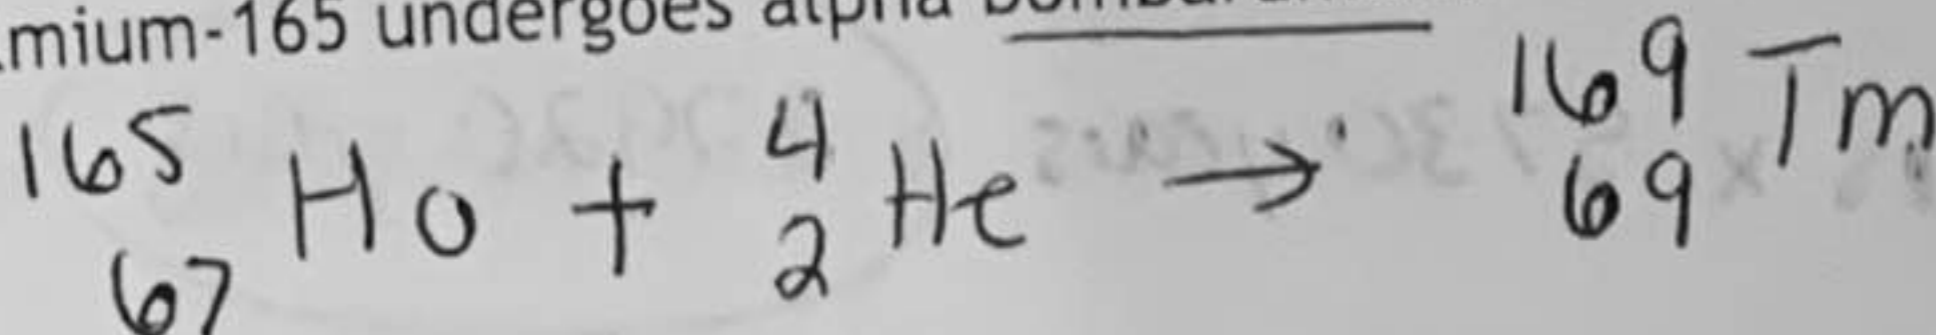 mium-165 undergoes alpha
¹⁶⁵₆₇Ho + ⁴₂He → ¹⁶⁹₆₉Tm